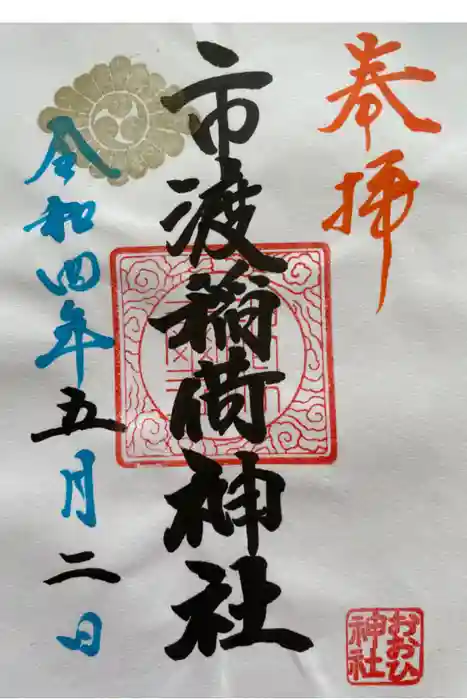 奉拝
市渡稲荷神社
令和四年五月二日
おおひ
神社